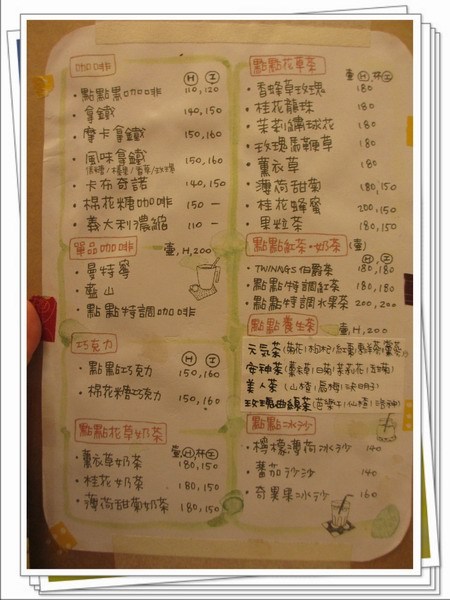 咖啡 Ⓗ Ⓘ
・點點黑咖啡 110,120
・拿鐵 140,150
・摩卡拿鐵 150,160
・風味拿鐵 150,160
・卡布奇諾 140,150
・棉花糖咖啡 150 —
・義大利濃縮 110 —
單品咖啡 壺,H,200
・曼特寧
・藍山
・點點特調咖啡
巧克力 Ⓗ Ⓘ
・點點黑巧克力 150,160
・棉花糖巧克力 150,160
點點花草奶茶 壺Ⓗ杯Ⓘ
・薰衣草奶茶 180,150
・桂花奶茶 180,150
・薄荷甜菊奶茶 180,150
點點花草茶 壺Ⓗ杯Ⓘ
・香蜂草玫瑰 180
・桂花龍珠 180
・茉莉繡球花 180
・玫瑰馬鞭草 180
・薰衣草 180
・薄荷甜菊 180,150
・桂花蜂蜜 200,150
・里粒茶 180,150
點點紅茶・奶茶 (壺) Ⓗ Ⓘ
・TWININGS伯爵茶 180,180
・點點特調紅茶 180,180
・點點特調水果茶 200,200
點點養生茶 壺,H,200
元氣茶(菊花/枸杞/紅棗
安神茶(薰衣草/
美人茶(山楂/烏梅/決明子)
玫瑰曲線茶(
點點冰沙
・檸檬薄荷冰沙 140
・蕃茄沙沙 140
・奇異果冰沙 160